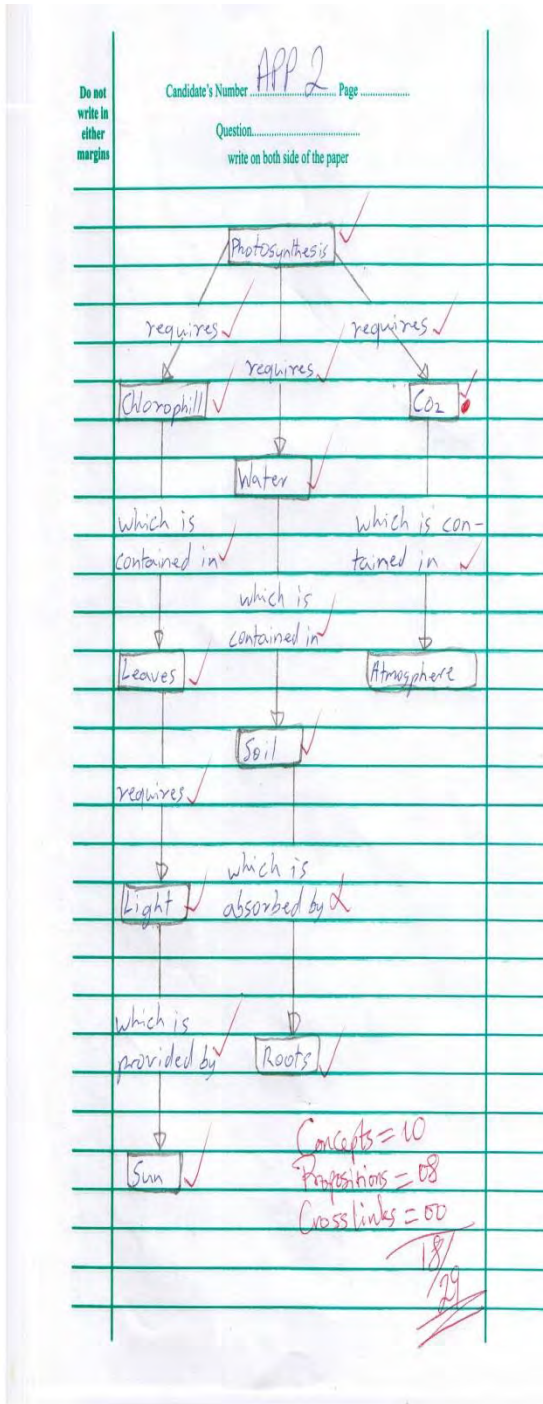 Do not
write in
either
margins
Candidate's Number APP 2 Page
Question
write on both side of the paper
Photosynthesis
requires
requires
requires
Chlorophill
CO2
Water
which is
contained in
which is con-
tained in
which is
contained in
Leaves
Atmosphere
Soil
requires
which is
absorbed by
Light
which is
provided by
Roots
Sun
Concepts = 10
Propositions = 08
Cross links = 00
18/29